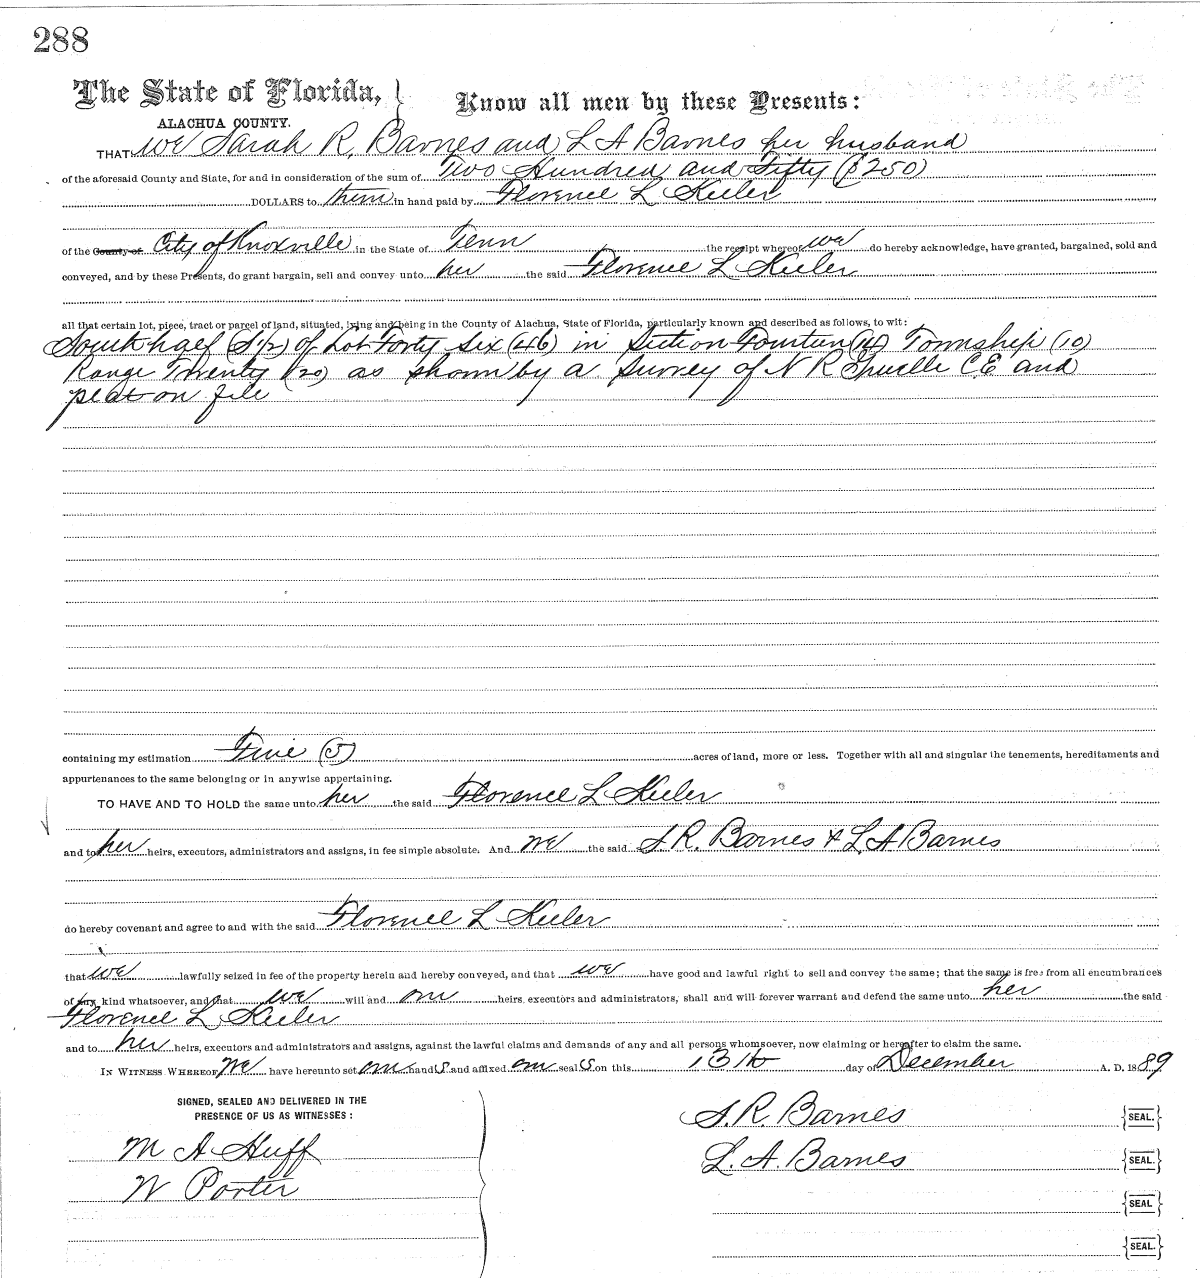 288
The State of Florida, } Know all men by these Presents:
ALACHUA COUNTY.
THAT we Sarah R. Barnes and L A Barnes her husband
of the aforesaid County and State, for and in consideration of the sum of Two Hundred and Fifty ($250)
DOLLARS to them in hand paid by Florence L Keeler
of the County of City of Knoxville in the State of Tenn the receipt whereof we do hereby acknowledge, have granted, bargained, sold and
conveyed, and by these Presents, do grant bargain, sell and convey unto her the said Florence L Keeler
all that certain lot, piece, tract or parcel of land, situated, lying and being in the County of Alachua, State of Florida, particularly known and described as follows, to wit:
South half (S 1/2) of Lot Forty Six (46) in Section Fourteen (14) Township (10)
Range Twenty (20) as shown by a Survey of N R C E and
plat on file
containing my estimation Five (5) acres of land, more or less. Together with all and singular the tenements, hereditaments and
appurtenances to the same belonging or in anywise appertaining.
TO HAVE AND TO HOLD the same unto her the said Florence L Keeler
and to her heirs, executors, administrators and assigns, in fee simple absolute. And we the said S. R. Barnes & L A Barnes
do hereby covenant and agree to and with the said Florence L Keeler
that we lawfully seized in fee of the property herein and hereby conveyed, and that we have good and lawful right to sell and convey the same; that the same is free from all encumbrances
of any kind whatsoever, and that we will and our heirs executors and administrators, shall and will forever warrant and defend the same unto her the said
Florence L Keeler
and to her heirs, executors and administrators and assigns, against the lawful claims and demands of any and all persons whomsoever, now claiming or hereafter to claim the same.
IN WITNESS WHEREOF we have hereunto set our hand s and affixed our seal s on this 13th day of December A. D. 1889
SIGNED, SEALED AND DELIVERED IN THE
PRESENCE OF US AS WITNESSES:
S. R. Barnes {SEAL.}
M A Huff
L. A. Barnes {SEAL.}
W Porter
{SEAL}
{SEAL.}